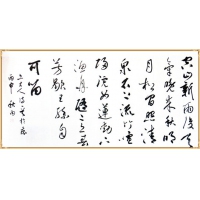 空山新雨後天
氣晚来秋明
月松間照清
泉石上流竹喧
歸浣女蓮動下
漁舟隨意春
芳歇王孫自
可留
丙申秋月